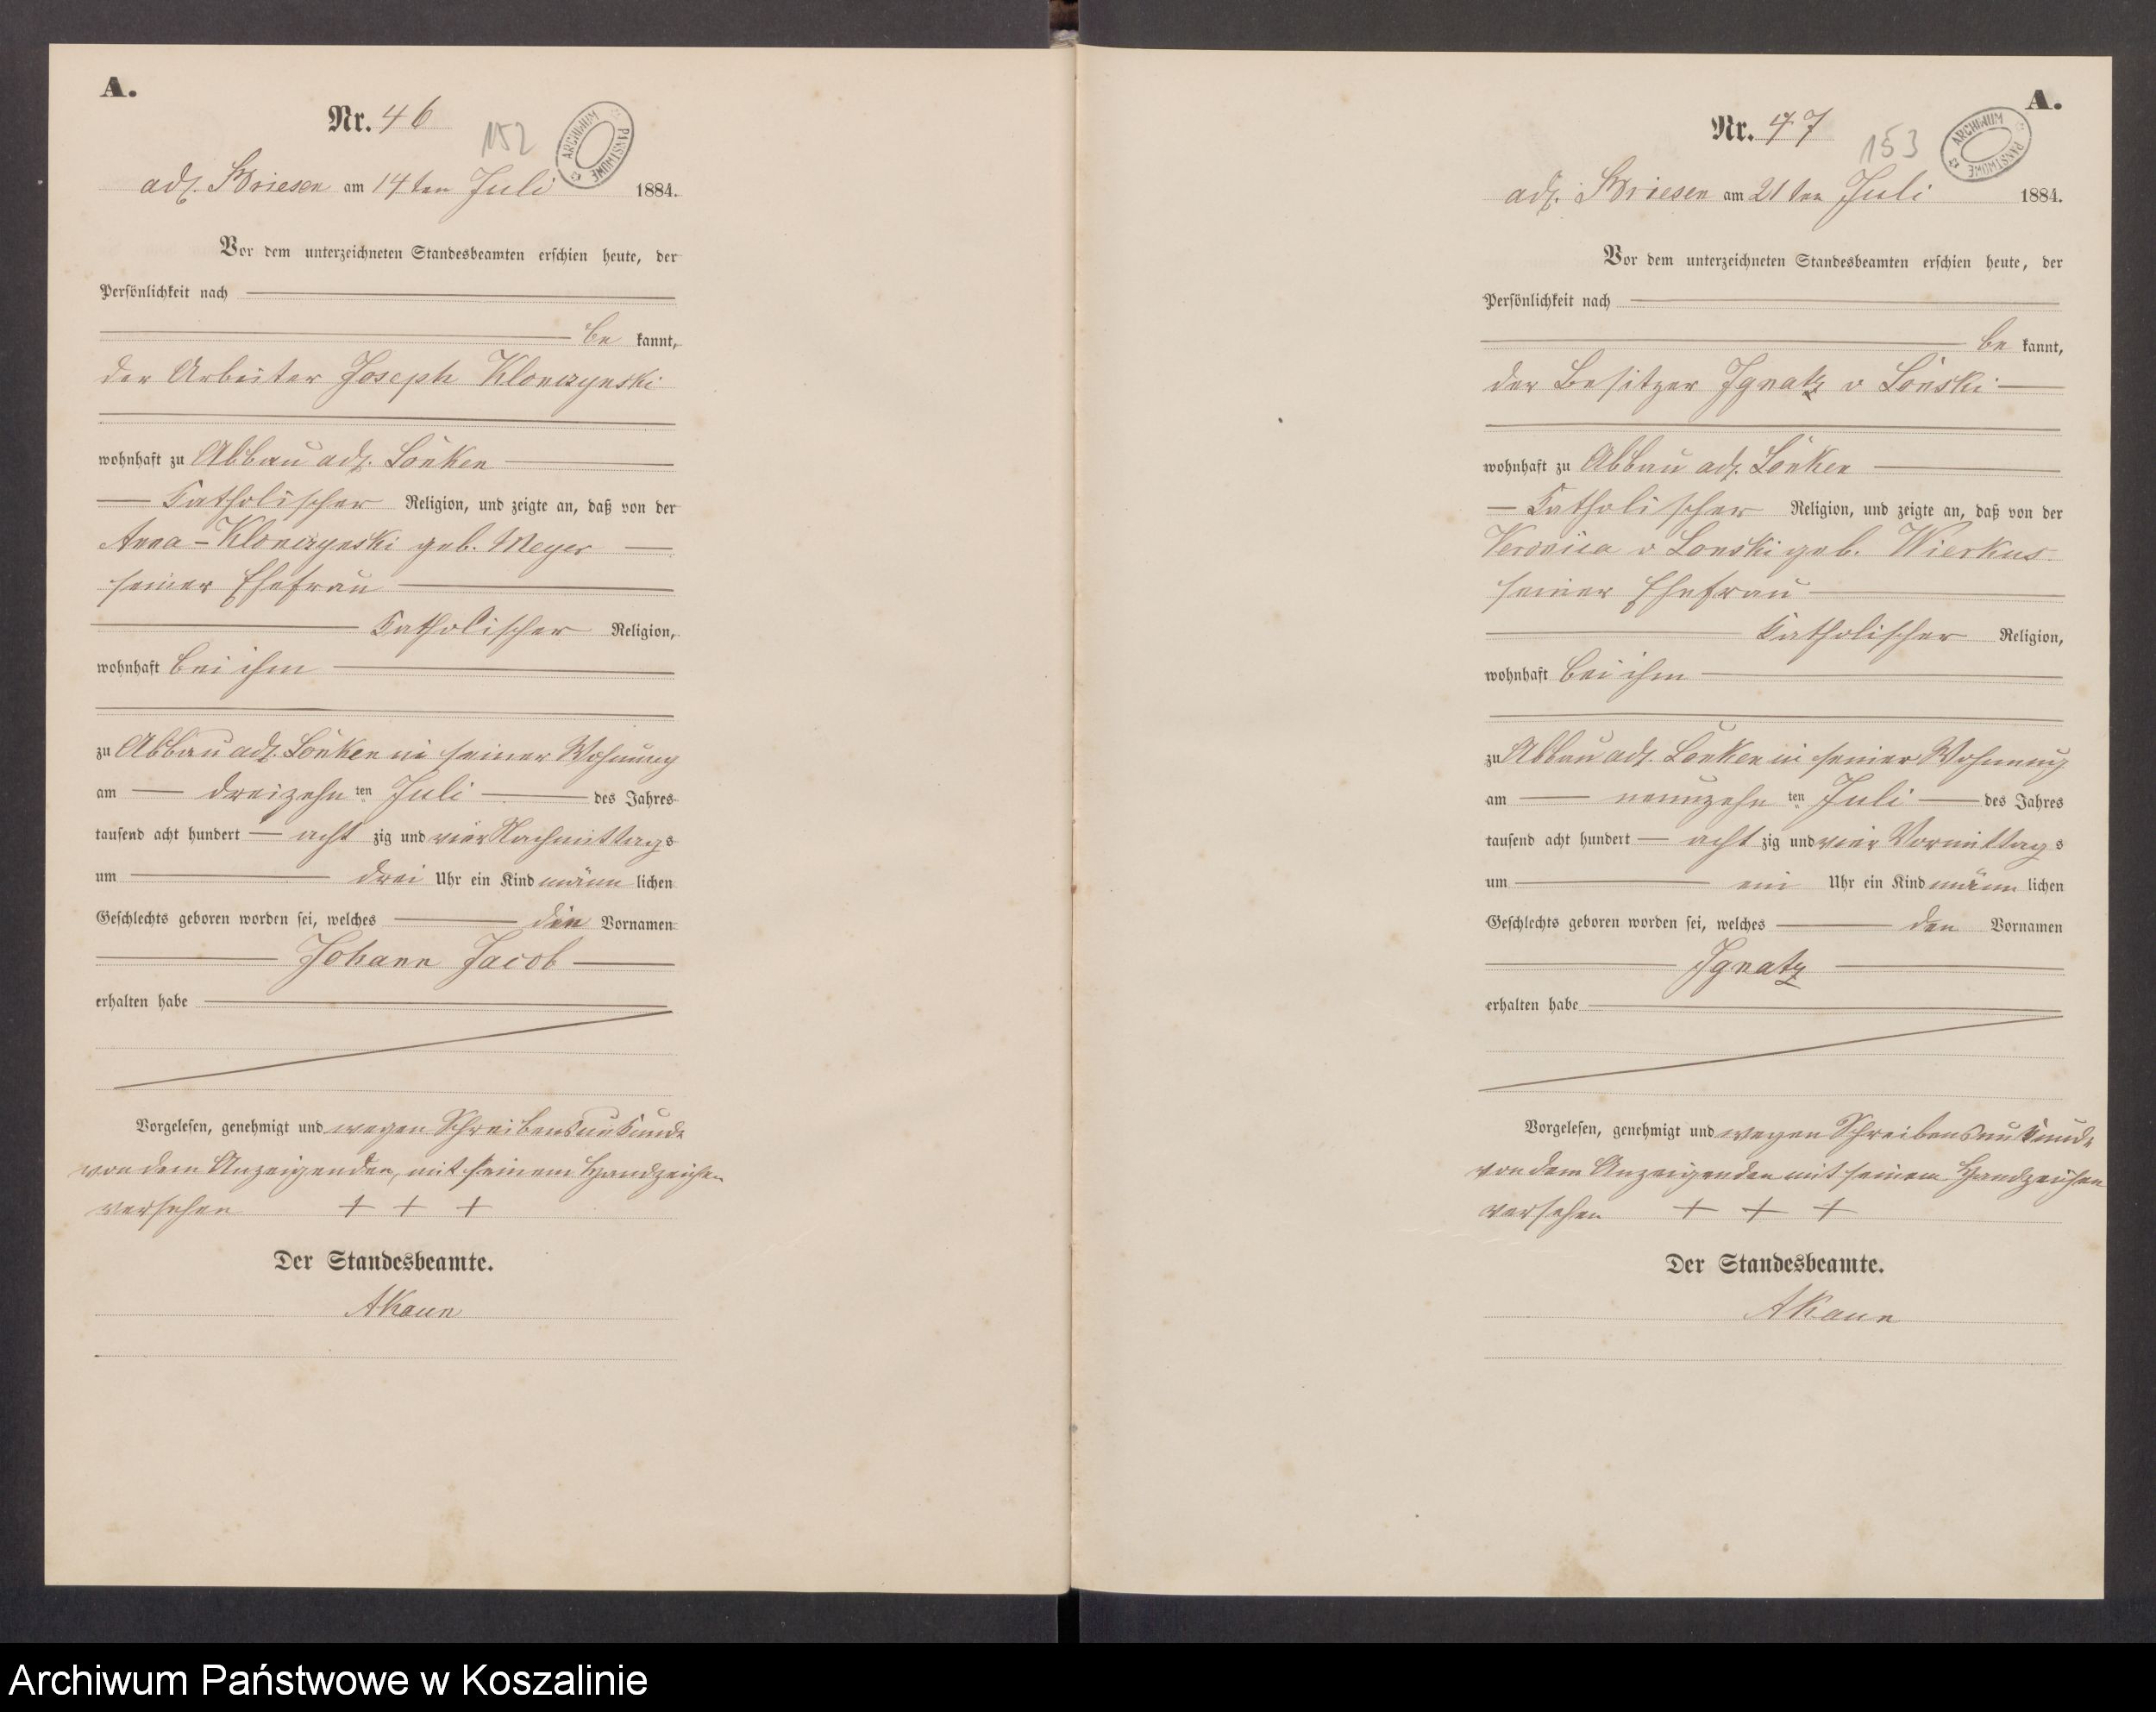 A.
Nr. 46
152
ARCHIWUM PAŃSTWOWE
adl. Briesen am 14ten Juli 1884.
Vor dem unterzeichneten Standesbeamten erschien heute, der
Persönlichkeit nach
be kannt,
der Arbeiter Joseph Klonczynski
wohnhaft zu Abbau adl. Lonken
Katholischer Religion, und zeigte an, daß von der
Anna Klonczynski geb. Meyer
seiner Ehefrau
Katholischer Religion,
wohnhaft bei ihm
zu Abbau adl. Lonken in seiner Wohnung
am dreizehn ten Juli des Jahres
tausend acht hundert acht zig und vier Nachmittags
um drei Uhr ein Kind männ lichen
Geschlechts geboren worden sei, welches die Vornamen
Johann Jacob
erhalten habe
Vorgelesen, genehmigt und wegen Schreibensunkunde
von dem Anzeigenden, mit seinem Handzeichen
versehen + + +
Der Standesbeamte.
AKaun
A.
Nr. 47
153
ARCHIWUM PAŃSTWOWE
adl. Briesen am 21ten Juli 1884.
Vor dem unterzeichneten Standesbeamten erschien heute, der
Persönlichkeit nach
be kannt,
der Besitzer Ignatz v Lonski
wohnhaft zu Abbau adl. Lonken
Katholischer Religion, und zeigte an, daß von der
Veronica v Lonski geb. Wierkus
seiner Ehefrau
Katholischer Religion,
wohnhaft bei ihm
zu Abbau adl. Lonken in seiner Wohnung
am neunzehn ten Juli des Jahres
tausend acht hundert acht zig und vier Vormittags
um ein Uhr ein Kind männ lichen
Geschlechts geboren worden sei, welches den Vornamen
Ignatz
erhalten habe
Vorgelesen, genehmigt und wegen Schreibensunkunde
von dem Anzeigenden mit seinem Handzeichen
versehen + + +
Der Standesbeamte.
AKaun
Archiwum Państwowe w Koszalinie